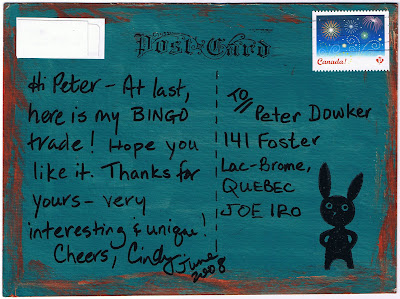 Post Card
Canada!
P
Hi Peter - At last,
here is my BINGO
trade! Hope you
like it. Thanks for
yours - very
interesting & unique!
Cheers, Cindy
June
2008
TO//
Peter Dowker
141 Foster
Lac-Brome,
QUEBEC
JOE IRO